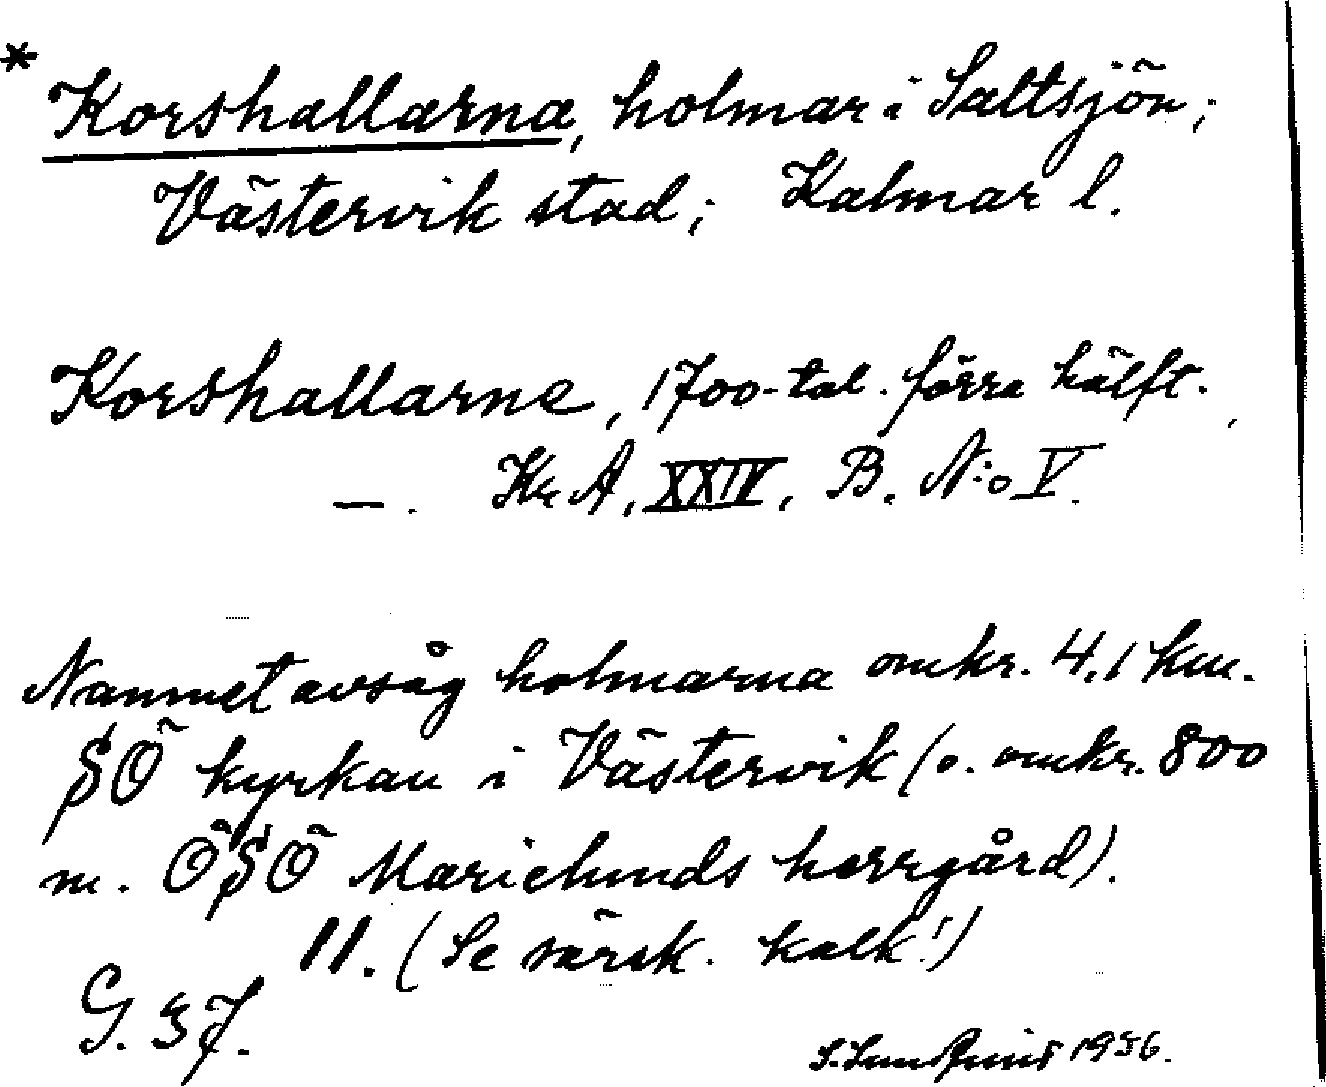 * Korshallarna, holmar i Saltsjön;
Västervik stad; Kalmar l.
Korshallarne, 1700-tal. förra hälft.,
—. Kr. A, XXIV, B. N:o V.
Namnet avsåg holmarna omkr. 4,1 km.
SÖ kyrkan i Västervik (o. omkr. 800
m. ÖSÖ Marielunds herrgård).
11. (Se särsk. kalk!)
G. 37.
1956.